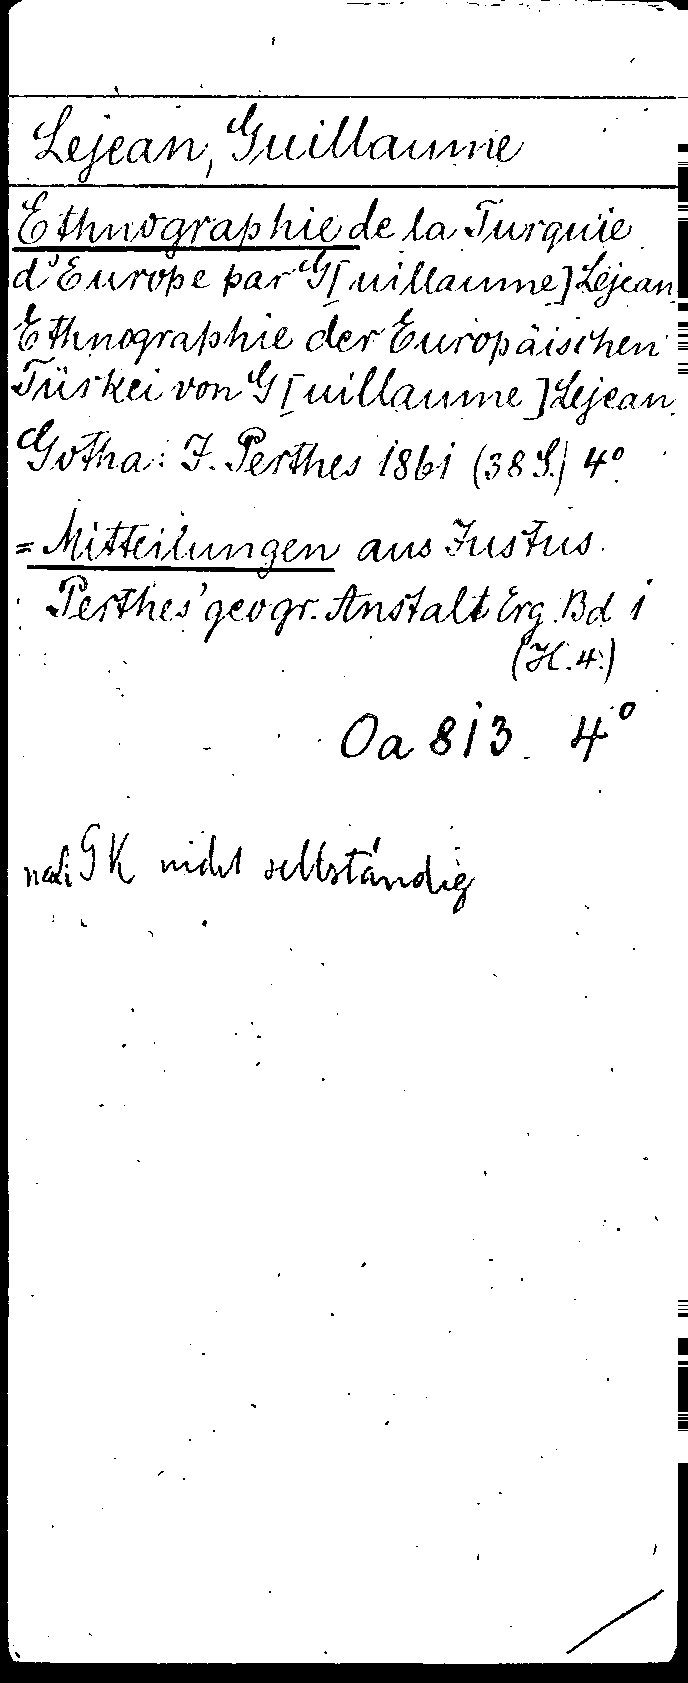 Lejean, Guillaume
Ethnographie de la Turquie
d'Europe par G[uillaume] Lejean.
Ethnographie der Europäischen
Türkei von G[uillaume] Lejean.
Gotha: J. Perthes 1861 (38 S.) 4°
= Mitteilungen aus Justus
Perthes' geogr. Anstalt Erg. Bd 1
(H. 4.)
Oa 813 4°
nach GK nicht selbständig